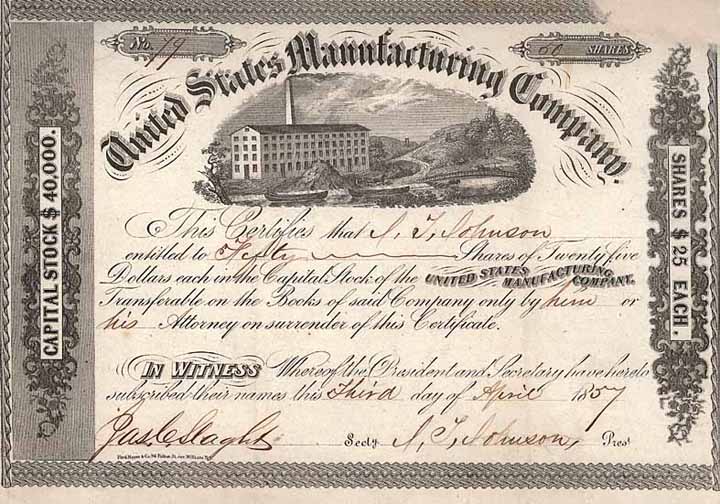 No. 79
50 SHARES
United States Manufacturing Company.
CAPITAL STOCK $ 40,000.
SHARES $ 25 EACH.
This Certifies that S. T. Johnson
entitled to Fifty Shares of Twenty five
Dollars each in the Capital Stock of the UNITED STATES MANUFACTURING COMPANY.
Transferable on the Books of said Company only by him or
his Attorney on surrender of this Certificate.
IN WITNESS Whereof the President and Secretary have hereto
subscribed their names this Third day of April 1857
Jas. C. Slaght Secty. S. T. Johnson, Prest